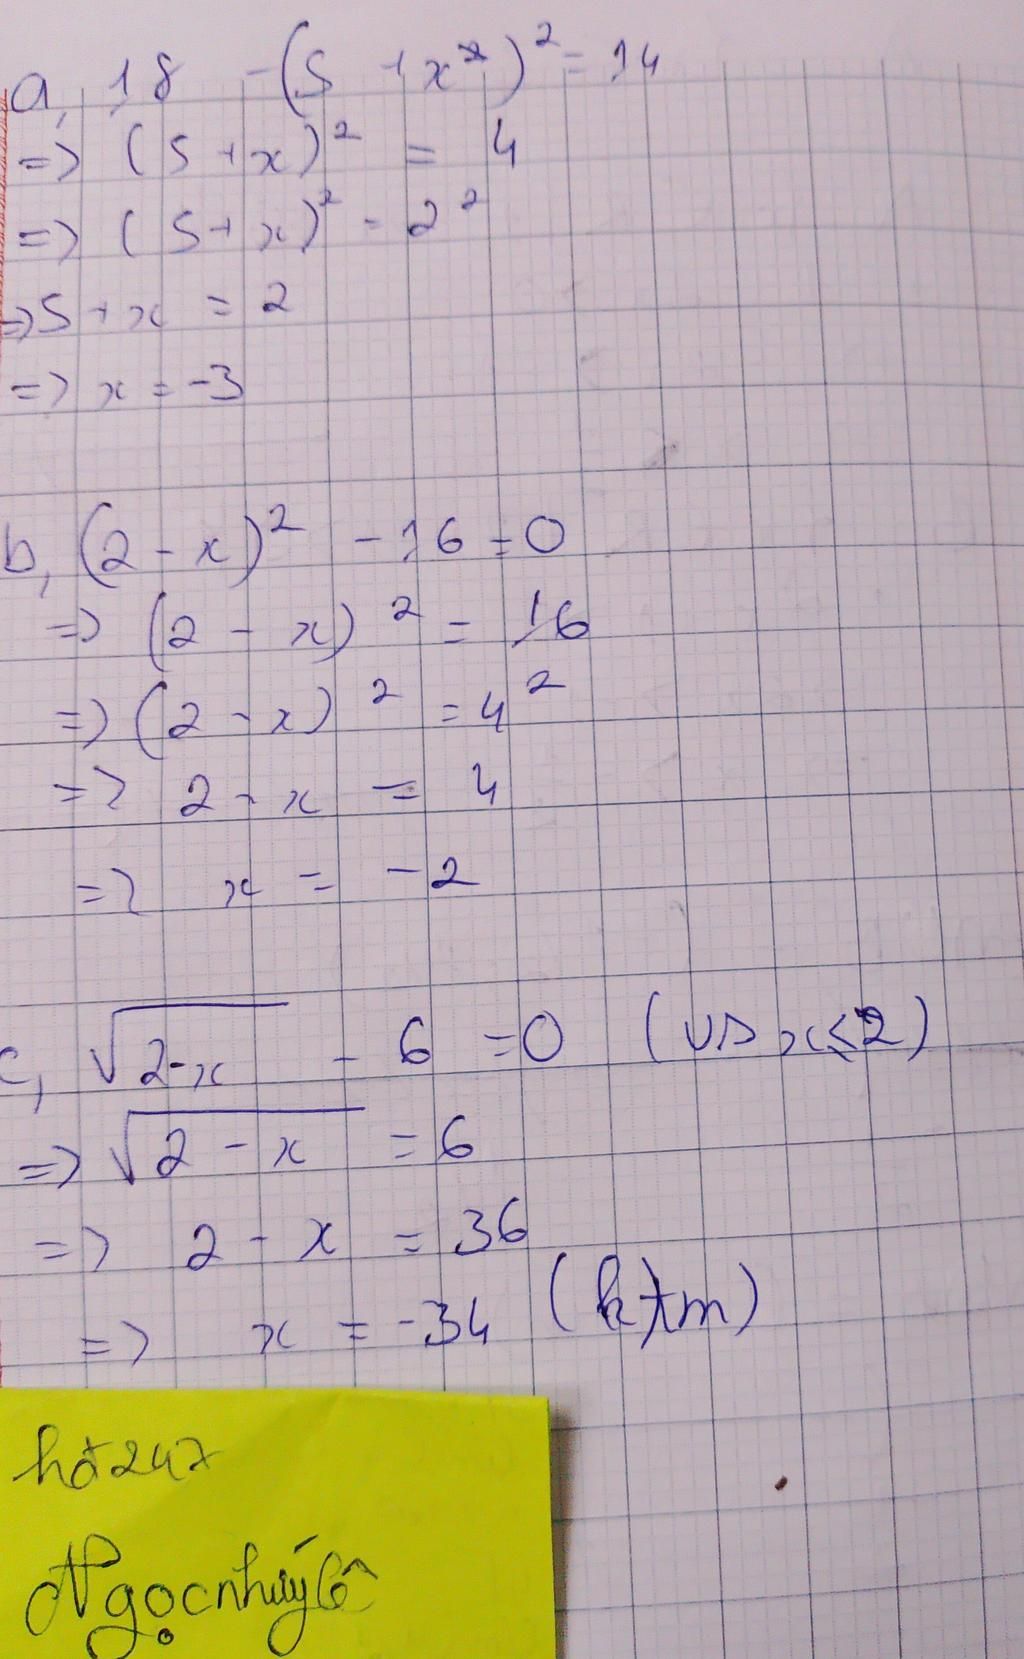 a, 18 - (5 + x)² = 14
=> (5 + x)² = 4
=> (5 + x)² = 2²
=> 5 + x = 2
=> x = -3
b, (2 - x)² - 16 = 0
=> (2 - x)² = 16
=> (2 - x)² = 4²
=> 2 - x = 4
=> x = -2
c, √2-x - 6 = 0 (VS x ≤ 2)
=> √2 - x = 6
=> 2 - x = 36
=> x = -34 (ktm)
hd247
Ngọcnhuýlê